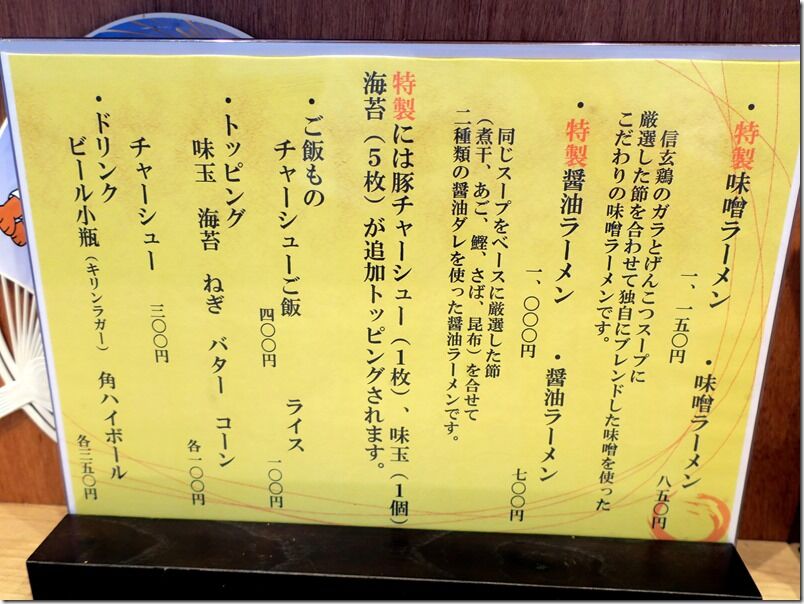 ・特製味噌ラーメン
一、一五〇円
・味噌ラーメン
八五〇円
信玄鶏のガラとげんこつスープに
厳選した節を合わせて独自にブレンドした味噌を使った
こだわりの味噌ラーメンです。
・特製醤油ラーメン
一、〇〇〇円
・醤油ラーメン
七〇〇円
同じスープをベースに厳選した節
(煮干、あご、鰹、さば、昆布)を合せて
二種類の醤油ダレを使った醤油ラーメンです。
特製には豚チャーシュー(1枚)、味玉(1個)
海苔(5枚)が追加トッピングされます。
・ご飯もの
チャーシューご飯
四〇〇円
ライス
一〇〇円
・トッピング
味玉 海苔 ねぎ バター コーン
各一〇〇円
チャーシュー
三〇〇円
・ドリンク
ビール小瓶(キリンラガー) 角ハイボール
各三五〇円